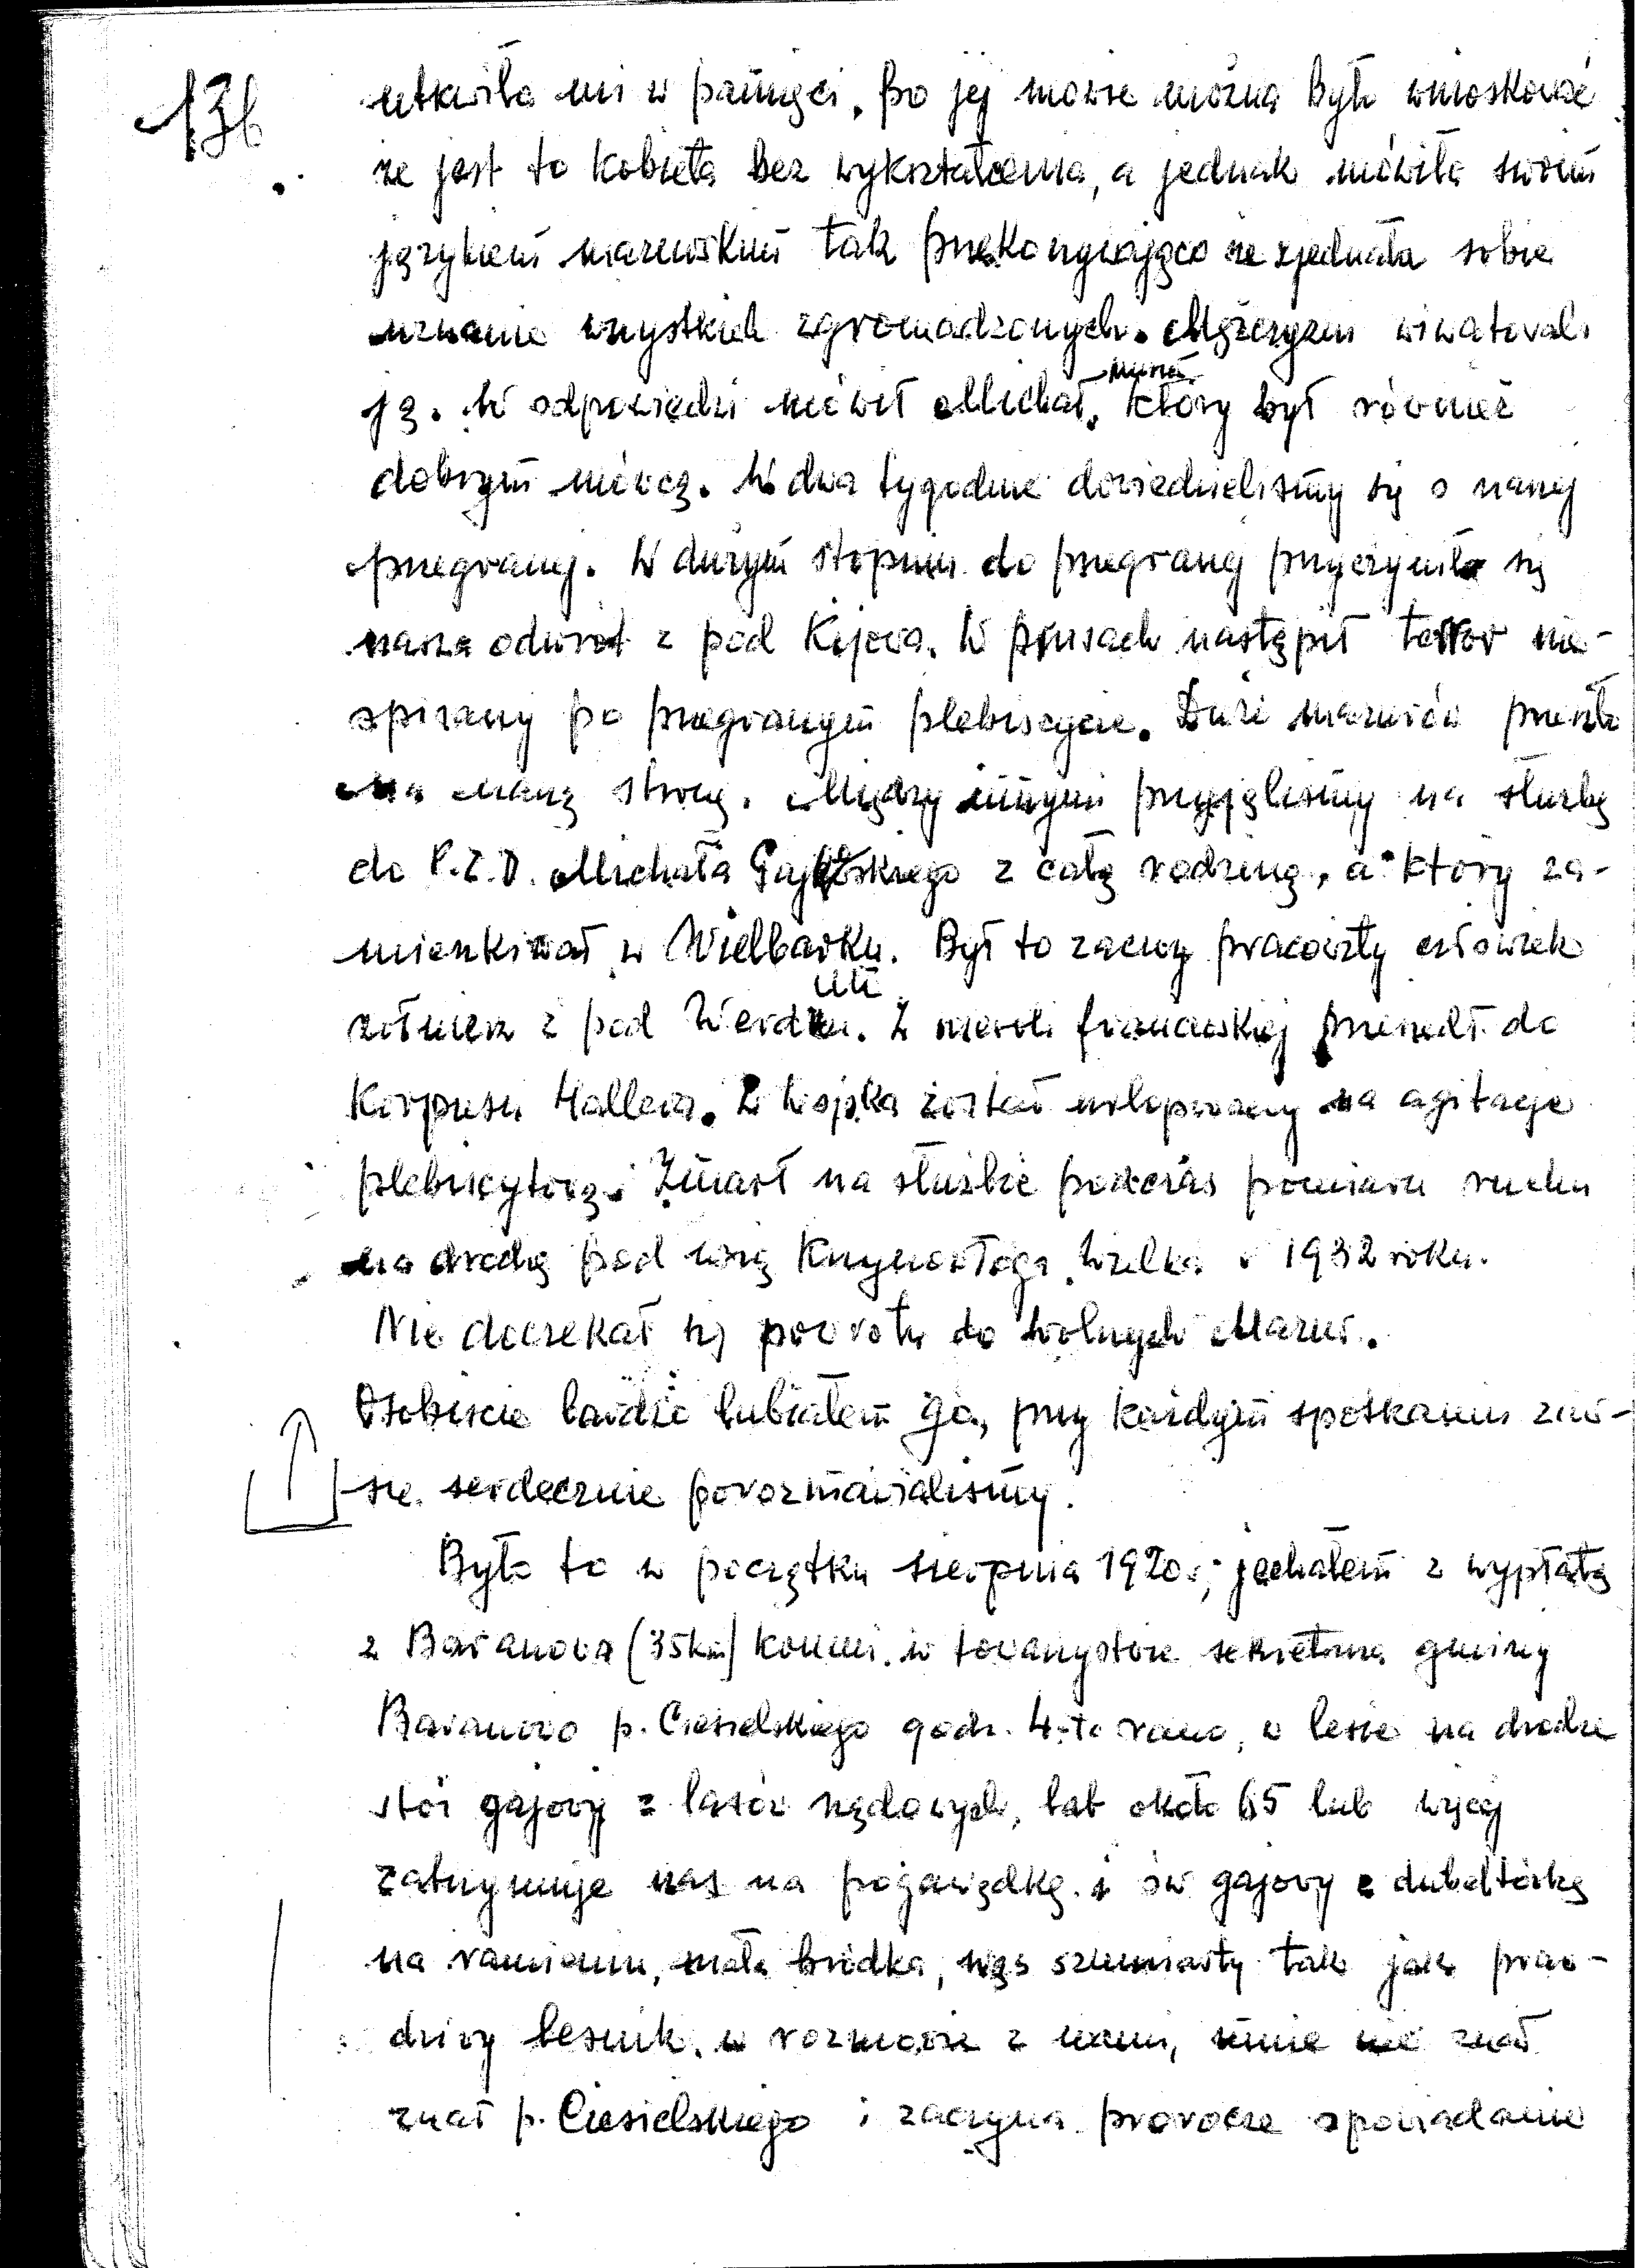 136
utkwiła mi w pamięci. Po jej mowie można było wnioskować
że jest to kobieta bez wykształcenia, a jednak mówiła swoim
językiem mazurskim tak przekonywająco że zjednała sobie
uznanie wszystkich zgromadzonych. Mężczyźni wiwatowali
ją. W odpowiedzi mówił Michał, który był również
dobrym mówcą. W dwa tygodnie dowiedzieliśmy się o naszej
przegranej. W dużym stopniu do przegranej przyczyniło się
nasza odwrót z pod Kijowa. W Prusach nastąpił terror nie-
opisany po przegranym plebiscycie. Dużo mazurów przeszło
na naszą stronę. Między innymi przyjęliśmy na służbę
do P.Z.D. Michała z całą rodziną, a który za-
mieszkiwał w Wielbarku. Był to zacny pracowity człowiek
żołnierz z pod Werdun. Z niewoli francuskiej przeszedł do
Korpusu Hallera. Z wojska został urlopowany na agitację
plebiscytową. Zmarł na służbie podczas pomiaru ruchu
na drodze pod wsią Krzynowłoga Wielka w 1932 roku.
Nie doczekał się powrotu do wolnych Mazur.
Osobiście bardzo lubiałem go, przy każdym spotkaniu zaw-
sze serdecznie porozmawialiśmy.
Było to w początku sierpnia 1920 r., jechałem z wypłatą
z Baranowa (35km) końmi w towarzystwie sekretarza gminy
Baranowo p. Ciesielskiego godz. 4-to rano, w lesie na drodze
stoi gajowy z lasów rządowych, lat około 65 lub więcej
zatrzymuje nas na pogawędkę. i ów gajowy z dubeltówką
na ramieniu, mała bródka, wąs szumiasty tak jak praw-
dziwy leśnik. w rozmowie z nami, mnie nie znał
znał p. Ciesielskiego i zaczyna prorocze opowiadanie